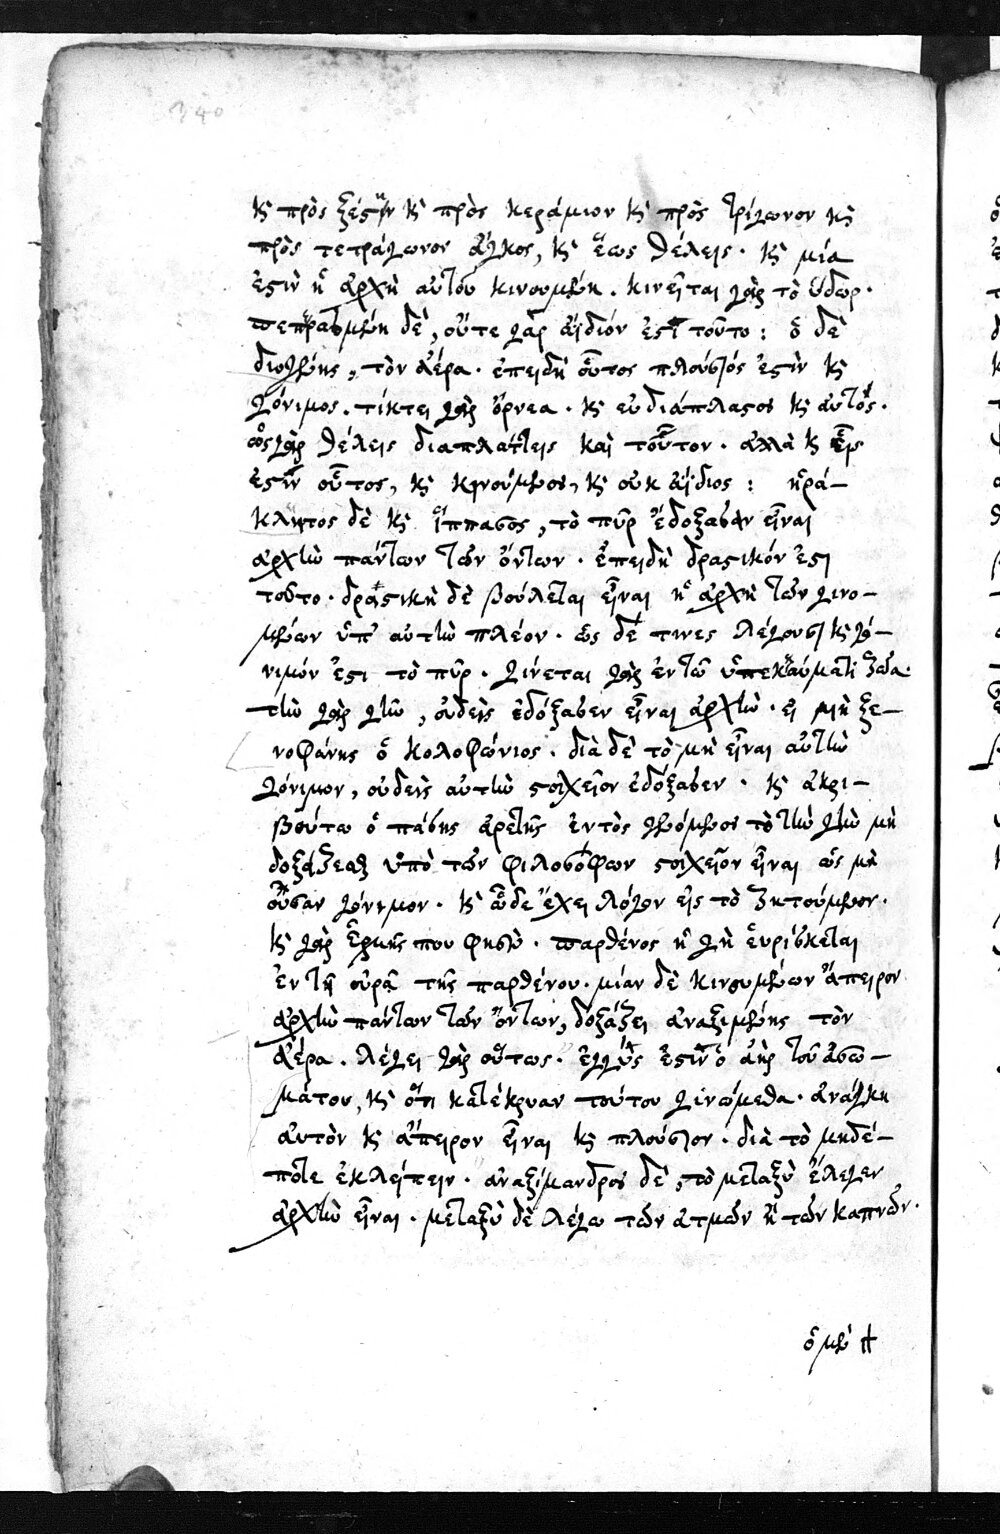 καὶ πρὸς ξέστην καὶ πρὸς κεράμιον καὶ πρὸς τρίγωνον καὶ
πρὸς τετράγωνον ἄγγος, καὶ ἕως θέλεις. καὶ μία
ἐστὶν ἡ ἀρχὴ αὐτοῦ κινουμένη. κινεῖται γὰρ τὸ ὕδωρ.
πεπερασμένη δὲ, οὔτε γὰρ ἀΐδιόν ἐστι τοῦτο: ὁ δὲ
διογένης, τὸν ἀέρα. ἐπειδὴ οὗτος πλούσιός ἐστὶν καὶ
γόνιμος. τίκτει γὰρ ὄρνεα. καὶ εὐδιάπλαστος καὶ αὐτός.
ὡς γὰρ θέλεις διαπλάττεις καὶ τοῦτον. ἀλλὰ καὶ εἷς
ἐστὶν οὗτος, καὶ κινούμενος, καὶ οὐκ ἀΐδιος: ἡρά-
κλητος δὲ καὶ ἵππασος, τὸ πῦρ ἐδόξασαν εἶναι
ἀρχὴν πάντων τῶν ὄντων. ἐπειδὴ δραστικόν ἐστι
τοῦτο. δραστικὴ δὲ βούλεται εἶναι ἡ ἀρχὴ τῶν γινο-
μένων ὑπ' αὐτὴν πλέον. ὡς δέ τινες λέγουσι καὶ γό-
νιμόν ἐστι τὸ πῦρ. γίνεται γὰρ ἐν τῷ ὑπεκκαύματι ζῶα.
τὴν γὰρ γῆν, οὐδεὶς ἐδόξασεν εἶναι ἀρχὴν. εἰ μὴ ξε-
νοφάνης ὁ κολοφώνιος. διὰ δὲ τὸ μὴ εἶναι αὐτὴν
γόνιμον, οὐδεὶς αὐτὴν στοιχεῖον ἐδόξασεν. καὶ ἀκρι-
βούτω ὁ πάσης ἀρετῆς ἐντὸς γενόμενος τὸ τὴν γῆν μὴ
δοξάζεσθαι ὑπὸ τῶν φιλοσόφων στοιχεῖον εἶναι ὡς μὴ
οὖσαν γόνιμον. καὶ ὧδε ἔχει λόγον εἰς τὸ ζητούμενον.
καὶ γὰρ ἑρμῆς που φησὶν. παρθένος ἡ γῆ εὑρίσκεται
ἐν τῇ οὐρᾷ τῆς παρθένου. μίαν δὲ κινουμένων ἄπειρον
ἀρχὴν πάντων τῶν ὄντων, δοξάζει ἀναξιμένης τὸν
ἀέρα. λέγει γὰρ οὕτως. ἐγγύς ἐστιν ὁ ἀὴρ τοῦ ἀσω-
μάτου, καὶ ὅτι κατ' ἔκρυαν τούτου γινόμεθα. ἀνάγκη
αὐτὸν καὶ ἄπειρον εἶναι καὶ πλούσιον. διὰ τὸ μηδέ-
ποτε ἐκλείπειν. ἀναξίμανδρος δέ, τὸ μεταξὺ ἔλεγεν
ἀρχὴν εἶναι. μεταξὺ δὲ λέγω τῶν ἀτμῶν ἢ τῶν καπνῶν.
ὁ μὲν